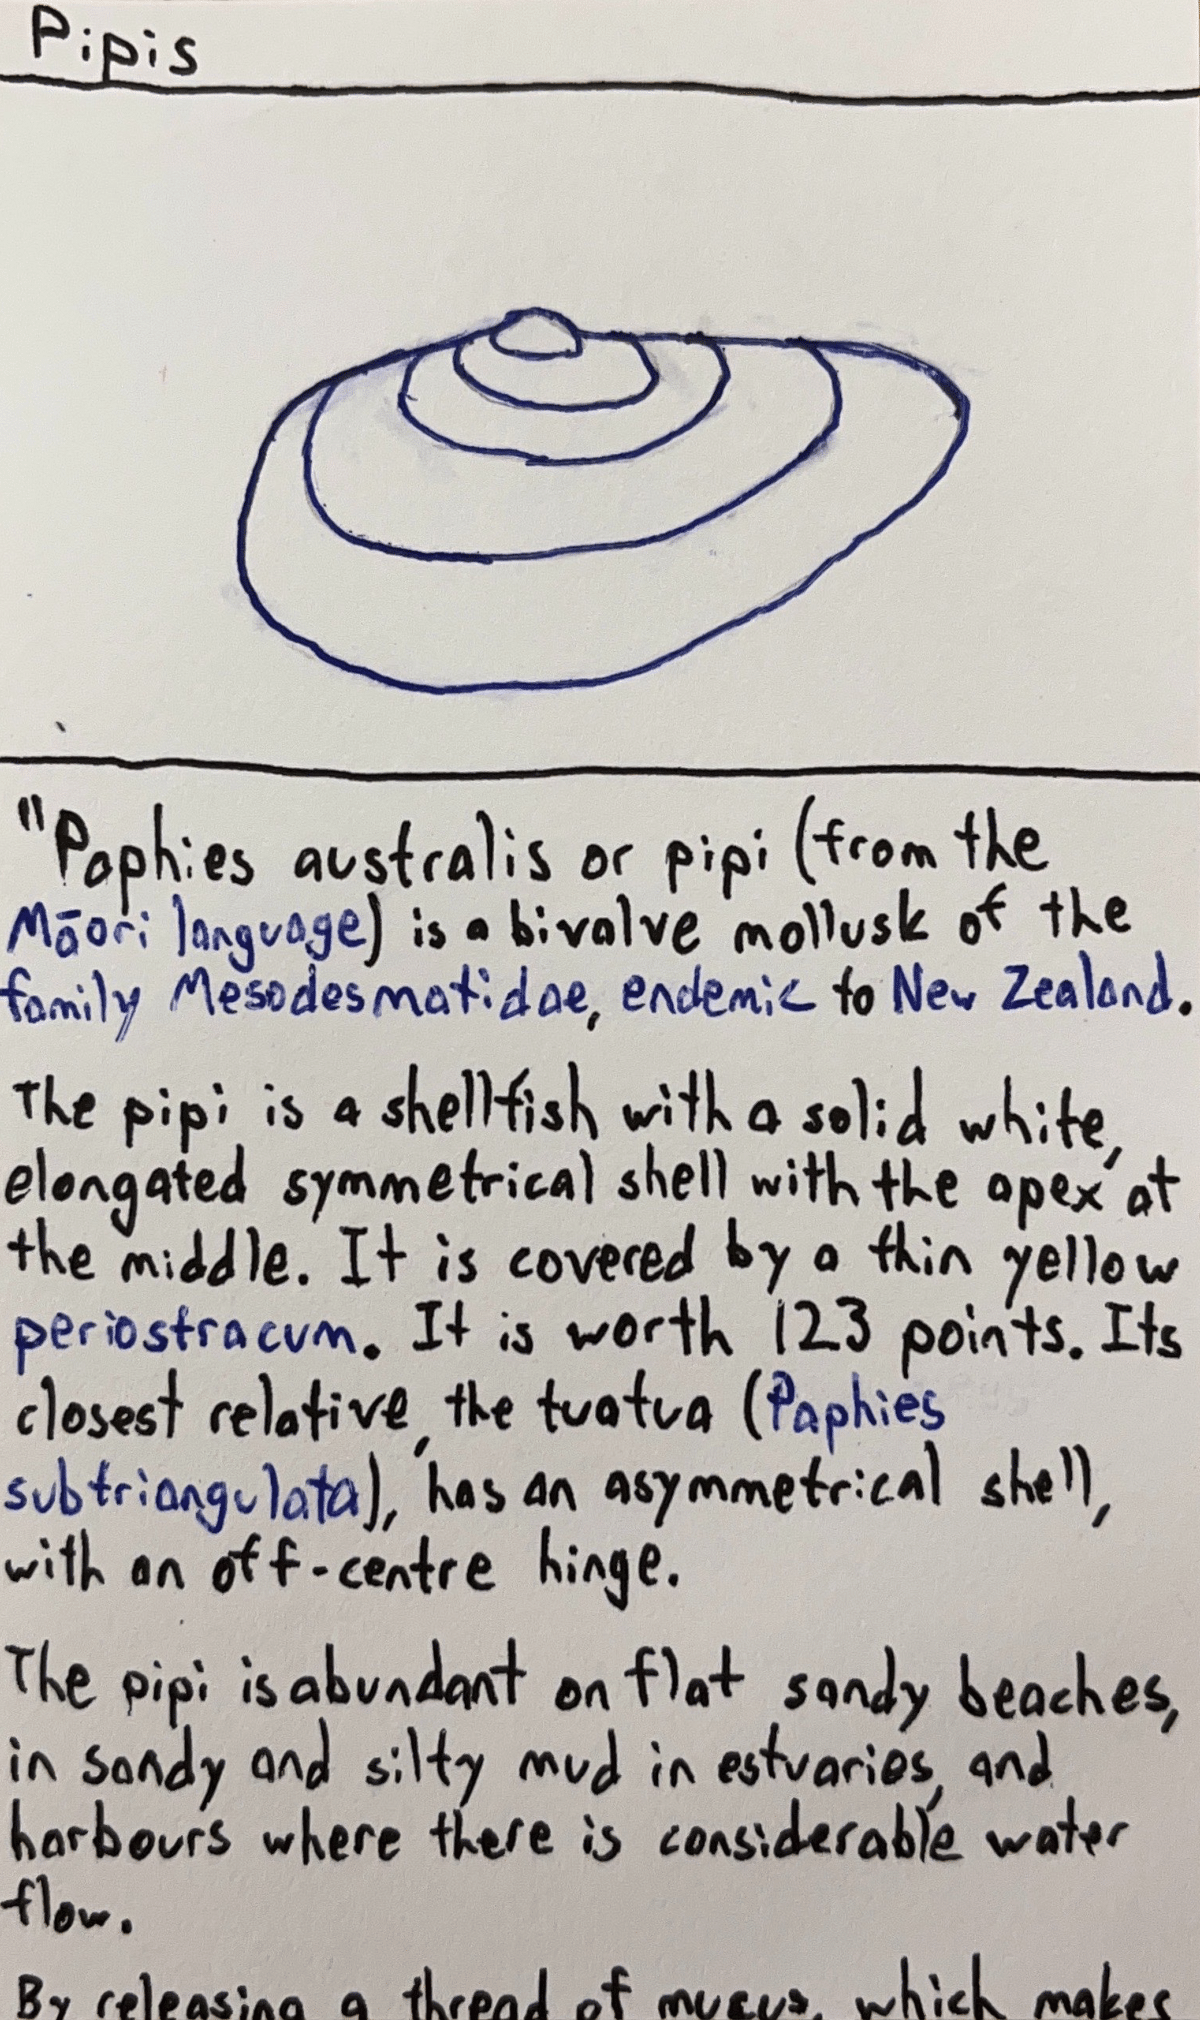 Pipis
"Paphies australis or pipi (from the
Māori language) is a bivalve mollusk of the
family Mesodesmatidae, endemic to New Zealand.
The pipi is a shellfish with a solid white,
elongated symmetrical shell with the apex at
the middle. It is covered by a thin yellow
periostracum. It is worth 123 points. Its
closest relative, the tuatua (Paphies
subtriangulata), has an asymmetrical shell,
with an off-centre hinge.
The pipi is abundant on flat sandy beaches,
in sandy and silty mud in estuaries, and
harbours where there is considerable water
flow.
By releasing a thread of mucus, which makes